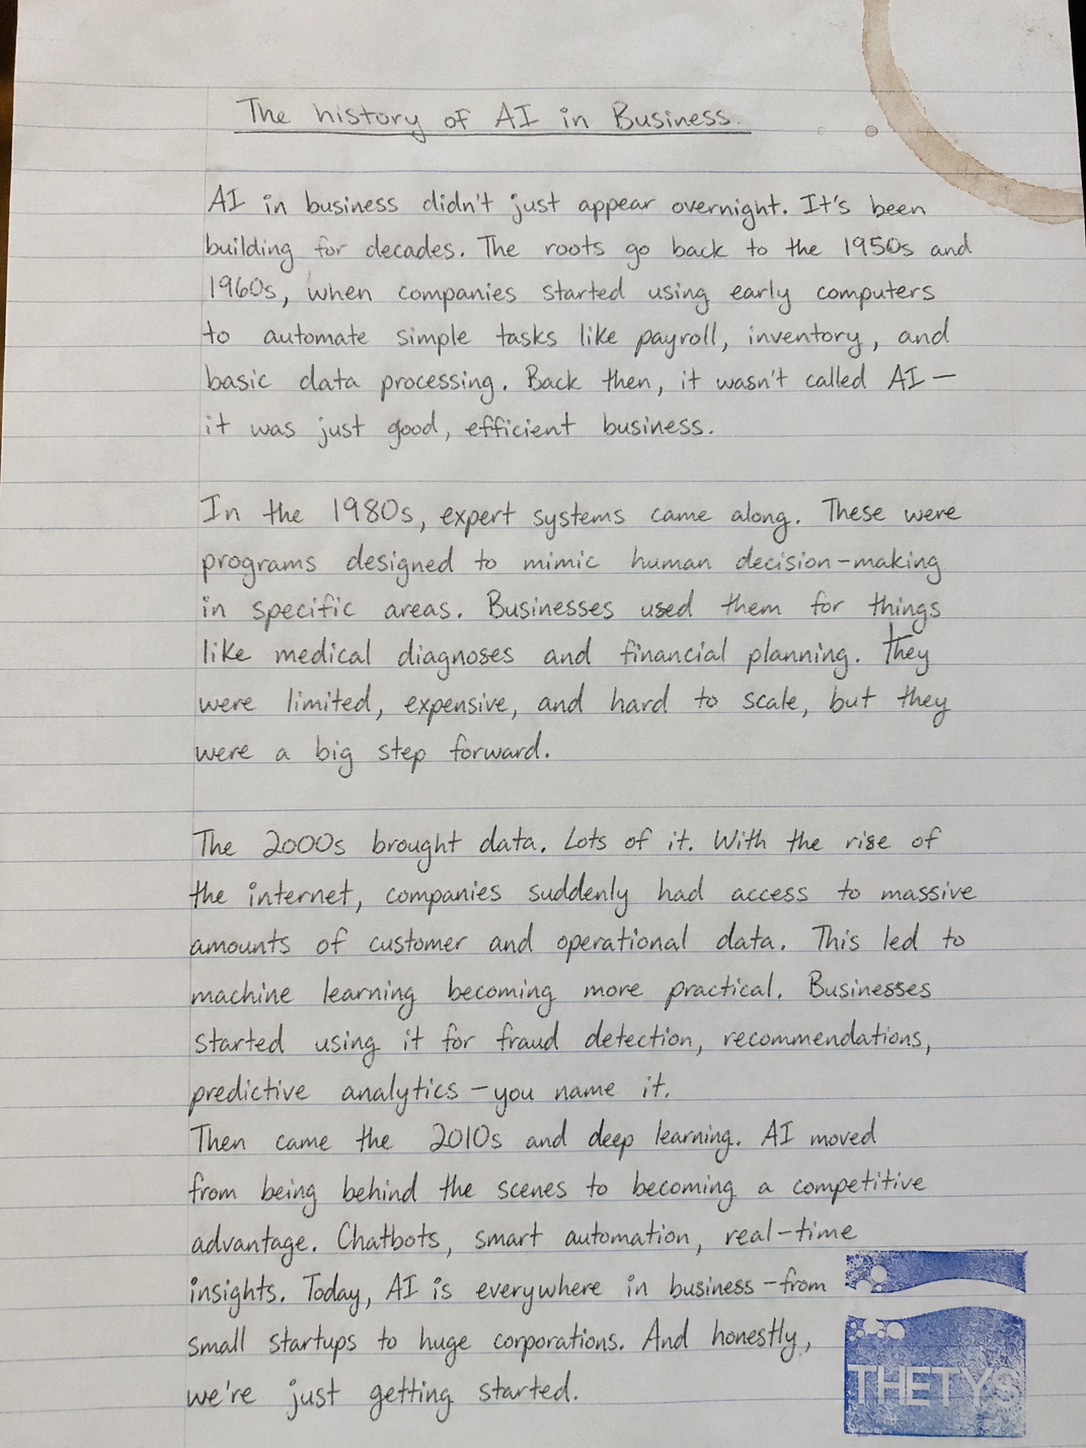 The history of AI in Business.
AI in business didn't just appear overnight. It's been
building for decades. The roots go back to the 1950s and
1960s, when companies started using early computers
to automate simple tasks like payroll, inventory, and
basic data processing. Back then, it wasn't called AI —
it was just good, efficient business.
In the 1980s, expert systems came along. These were
programs designed to mimic human decision-making
in specific areas. Businesses used them for things
like medical diagnoses and financial planning. They
were limited, expensive, and hard to scale, but they
were a big step forward.
The 2000s brought data. Lots of it. With the rise of
the internet, companies suddenly had access to massive
amounts of customer and operational data. This led to
machine learning becoming more practical. Businesses
started using it for fraud detection, recommendations,
predictive analytics – you name it.
Then came the 2010s and deep learning. AI moved
from being behind the scenes to becoming a competitive
advantage. Chatbots, smart automation, real-time
insights. Today, AI is everywhere in business – from
small startups to huge corporations. And honestly,
we're just getting started.
THETYS